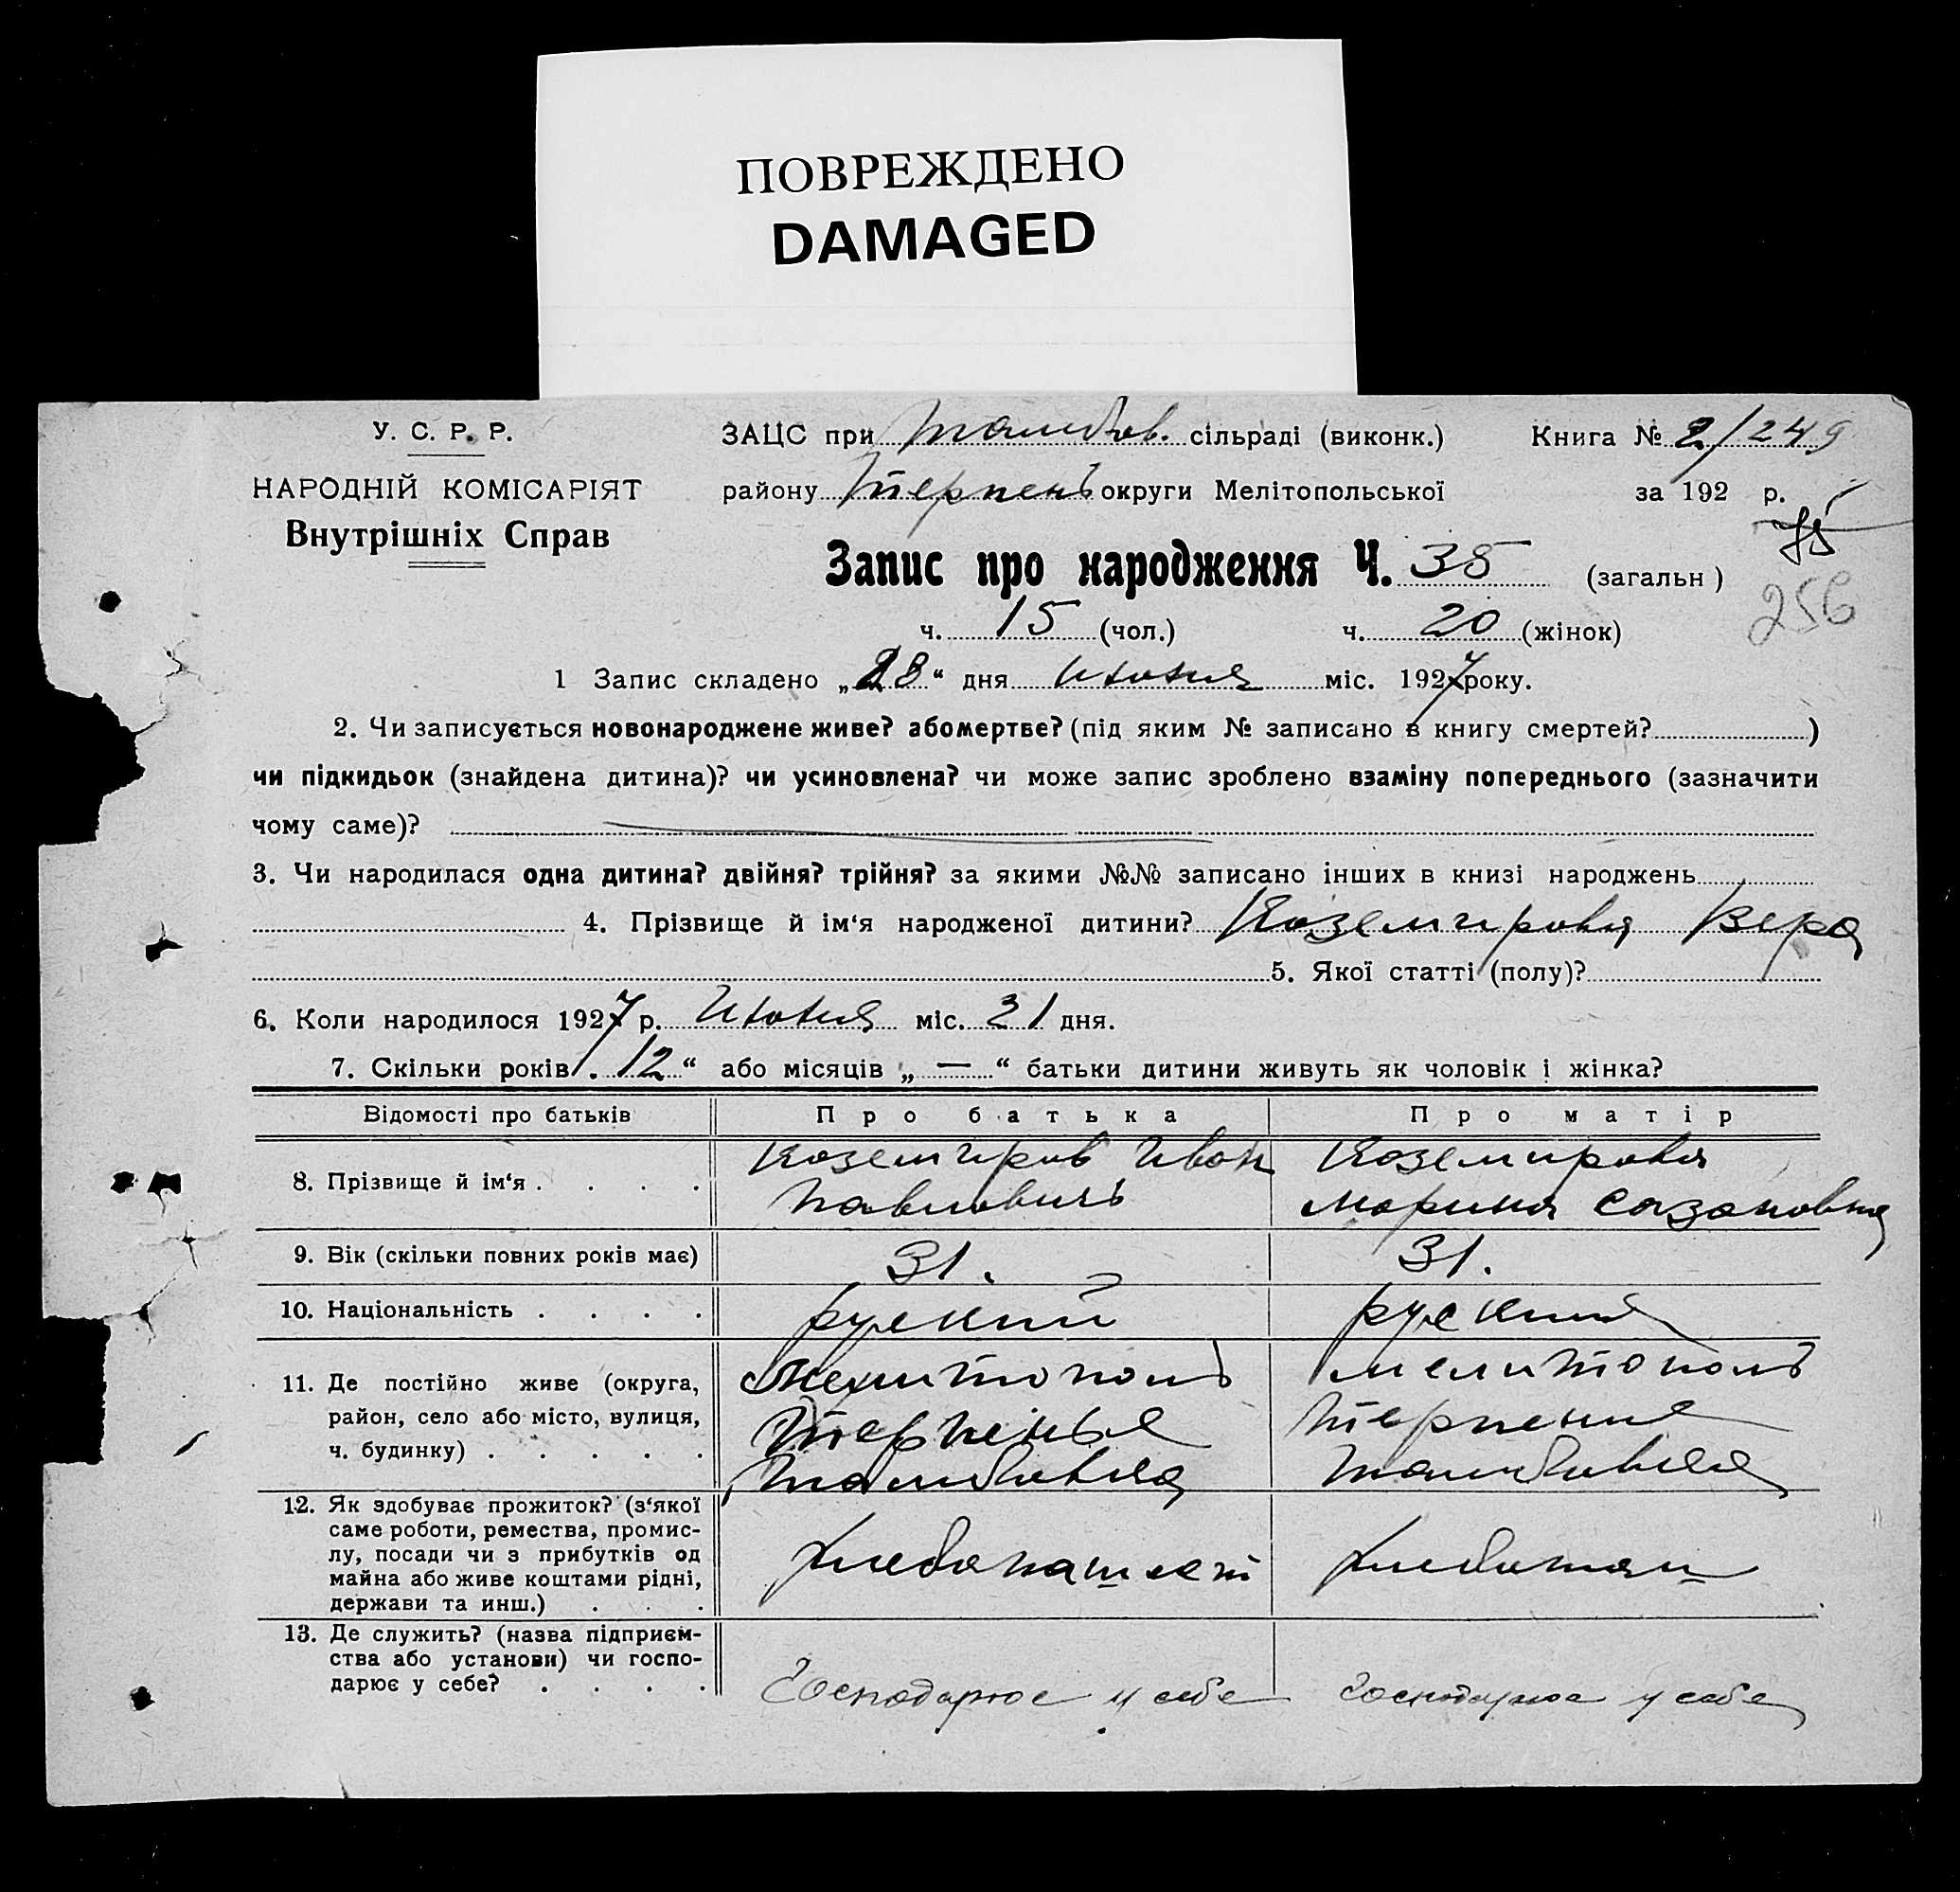 ПОВРЕЖДЕНО
DAMAGED
У. С. Р. Р.
НАРОДНІЙ КОМІСАРІЯТ
Внутрішніх Справ
ЗАЦС при сільраді (виконк.) Книга № 2/249
району Терпень округи Мелітопольської за 192 р.
Запис про народження Ч. 35 (загальн )
256
ч. 15 (чол.) ч. 20 (жінок)
1 Запис складено „28“ дня Июня міс. 1927 року.
2. Чи записується новонароджене живе? або мертве? (під яким № записано в книгу смертей? )
чи підкидьок (знайдена дитина)? чи усиновлена? чи може запис зроблено взаміну попереднього (зазначити
чому саме)?
3. Чи народилася одна дитина? двійня? трійня? за якими №№ записано інших в книзі народжень
4. Прізвище й ім‘я народженої дитини? Коземирова Вера
5. Якої статті (полу)?
6. Коли народилося 1927 р. Июня міс. 21 дня.
7. Скільки років „12“ або місяців „—“ батьки дитини живуть як чоловік і жінка?
Відомості про батьків Про батька Про матір
8. Прізвище й ім‘я . . . . Коземиров Иван Павлович Коземирова Марина Сазоновна
9. Вік (скільки повних років має) 31. 31.
10. Національність . . . . руский руская
11. Де постійно живе (округа, Мелитополь мелитополь
район, село або місто, вулиця, Терпенье Терпение
ч. будинку) . . . . .
12. Як здобуває прожиток? (з‘якої
саме роботи, ремества, промис-
лу, посади чи з прибутків од хлебопашест хлебопаш
майна або живе коштами рідні,
держави та инш.) . . .
13. Де служить? (назва підприєм-
ства або установи) чи госпо-
дарює у себе? . . . . Господарює у себе Господарює у себе